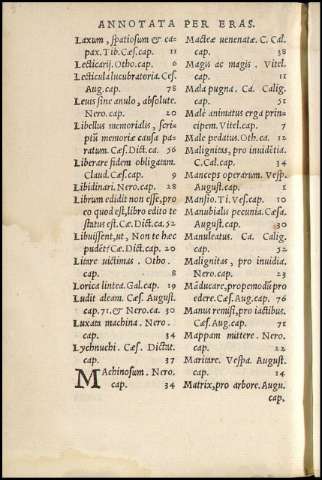 ANNOTATA PER ERAS.
Laxum, spatiosum & ca-
pax. Tib. Cæs. cap. 11
Lecticarij. Otho. cap. 6
Lecticula lucubratoria. Cæs.
Aug. cap. 78
Leuis sine anulo, absolute.
Nero. cap. 20
Libellus memorialis, scri-
ptũ memoriæ causa pa-
ratum. Cæs. Dict. ca. 56
Liberare fidem obligatam.
Claud. cap. 9
Libidinari. Nero. cap. 28
Librum edidit non esse, pro
eo quod est, libro edito te
status est. Cæ. Dict. ca. 52
Libuissent, ut, Non te hæc
pudẽt? Cæ. Dict. cap. 20
Litare uictimas. Otho.
cap. 8
Lorica lintea. Gal. cap. 19
Ludit aleam. Cæs. August.
cap. 71. & Nero. ca. 30
Luxata machina. Nero.
cap. 34
Lychnuchi. Cæs. Dictat.
cap. 37
MAchinosum. Nero.
cap. 34
Macteæ uenenatæ. C. Cal.
cap. 38
Magis ac magis. Vitel.
cap. 11
Mala pugna. Ca. Calig.
cap. 51
Male animatus erga prin-
cipem. Vitel. cap. 7
Male pedatus. Oth. ca. 12
Malignitas, pro inuidia.
C. Cal. cap. 34
Manceps operarum. Vesp.
August. cap. 1
Mansio. Ti. Ves. cap. 10
Manubialis pecunia. Cæsa.
August. cap. 30
Manuleatus. Ca. Calig.
cap. 52
Malignitas, pro inuidia.
Nero. cap. 23
Māducare, propemodũ pro
edere. Cæs. Aug. cap. 76
Manus remisit, pro iactibus.
Cæs. Aug. cap. 71
Mappam mittere. Nero.
cap. 22
Maritare. Vespa. August.
cap. 14
Matrix, pro arbore. Augu.
cap.